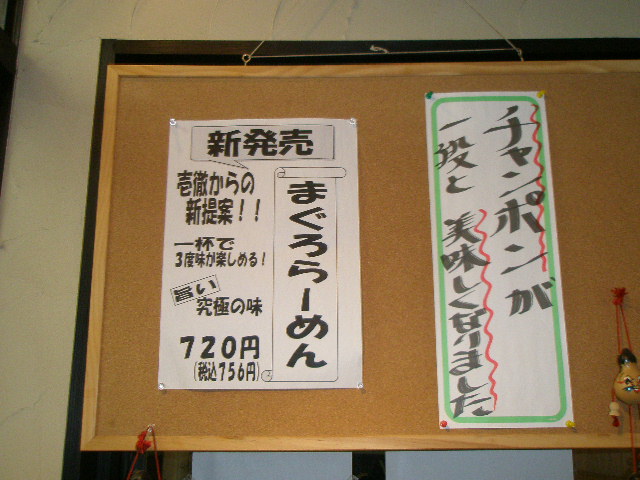 新発売
壱徹からの
新提案！！
一杯で
3度味が楽しめる！
旨い
究極の味
720円
(税込756円)
まぐろらーめん
チャンポンが
一段と美味しくなりました